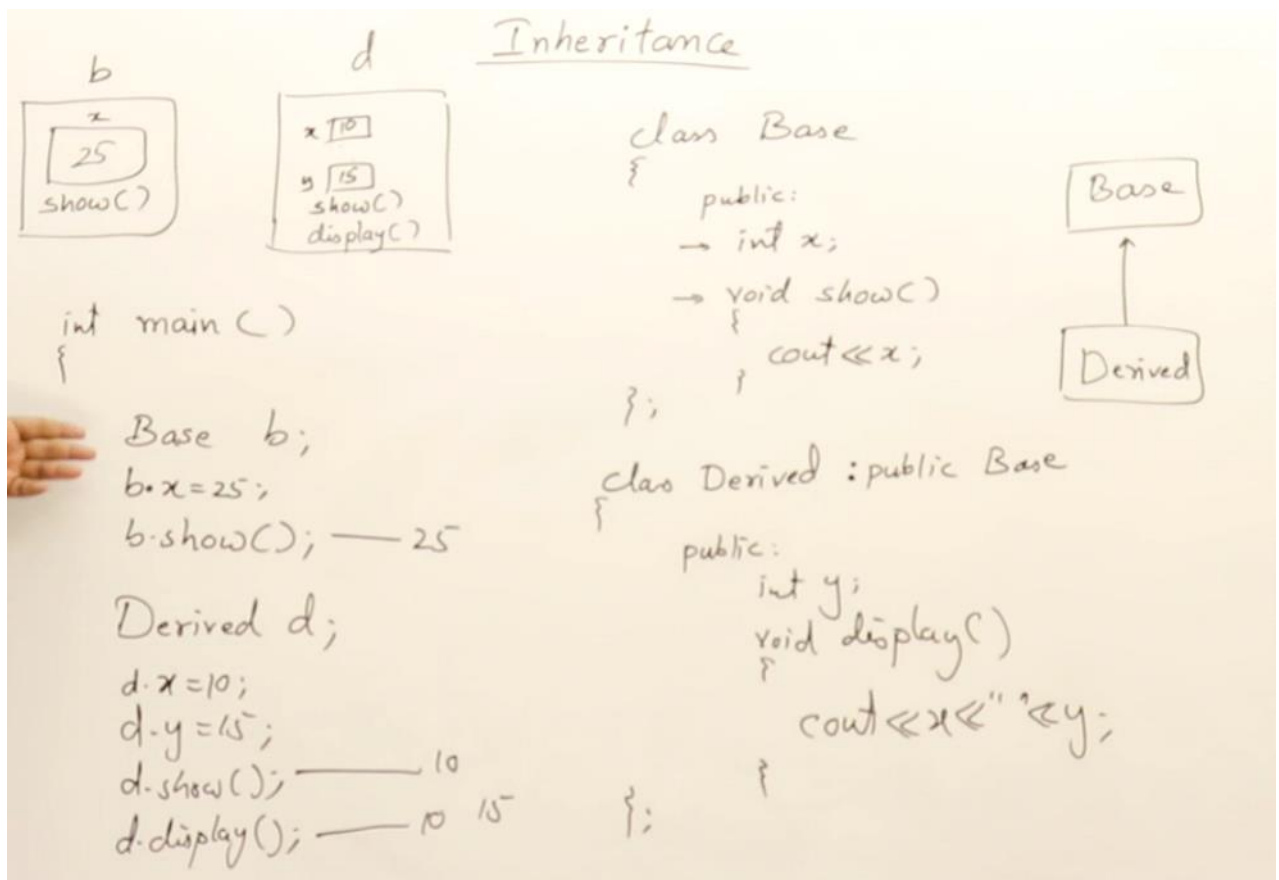 Inheritance
b
x
25
show()
d
x 10
y 15
show()
display()
int main ()
{
Base b;
b.x=25;
b.show(); — 25
Derived d;
d.x=10;
d.y=15;
d.show(); — 10
d.display(); — 10 15
class Base
{
public:
→ int x;
→ void show()
{
cout<<x;
}
};
class Derived : public Base
{
public:
int y;
void display()
{
cout<<x<<" "<<y;
}
};
Base
Derived